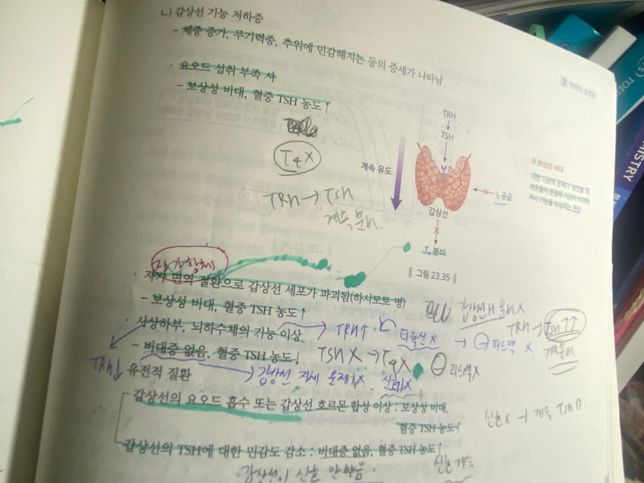 ㄴ) 갑상선 기능 저하증
- 체중 증가, 무기력증, 추위에 민감해지는 등의 증세가 나타남
· 요오드 섭취 부족 시
- 보상성 비대, 혈중 TSH 농도↑
T4 X
TRH → TSH
계속 분비
TRH
TSH
계속 유도
I₂ 공급
갑상선
T₄ 분비
‖ 그림 23.35 ‖
보상성 비대
자가항체
· 자가 면역 질환으로 갑상선 세포가 파괴됨(하시모토 병)
- 보상성 비대, 혈중 TSH 농도↑
· 시상하부, 뇌하수체의 기능 이상
→ TRH↑
티록신 X
→ ⊖ 피드백 X
TRH →
- 비대증 없음, 혈중 TSH 농도↓
TSH X → T4 X
⊖ 피드백 X
· 유전적 질환
갑상선 자체 문제
갑상선의 요오드 흡수 또는 갑상선 호르몬 합성 이상 : 보상성 비대,
혈중 TSH 농도↑
신호 X → 계속 TSH
갑상선의 TSH에 대한 민감도 감소 : 비대증 없음, 혈중 TSH 농도↑
갑상선이 신호 안 받음
신호 계속